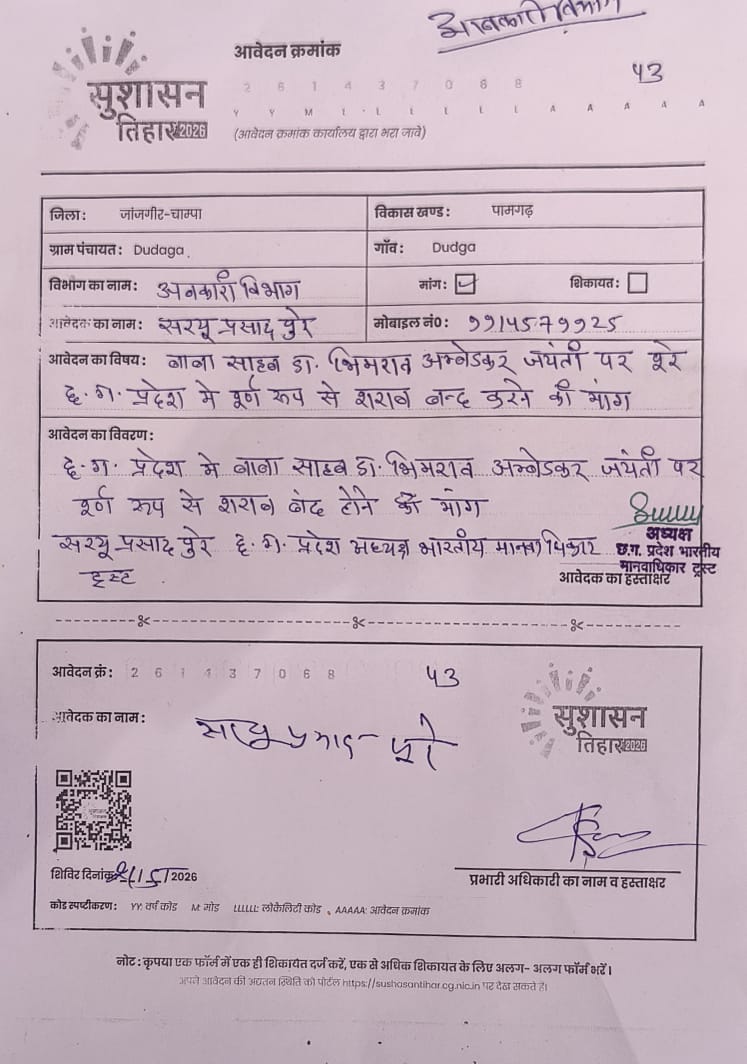 आबकारी विभाग
आवेदन क्रमांक
सुशासन
तिहार 2026
2 6 1 4 3 7 0 6 8
43
Y Y M L L L L L L A A A A A
(आवेदन क्रमांक कार्यालय द्वारा भरा जावे)
जिला: जांजगीर-चाम्पा विकास खण्ड: पामगढ़
ग्राम पंचायत: Dudaga गाँव: Dudga
विभाग का नाम: अनकारी विभाग मांग: शिकायत:
आवेदक का नाम: सरयू प्रसाद पुरे मोबाइल नं0: 9914579925
आवेदन का विषय: बाबा साहब डा. भिमराव अम्बेडकर जयंती पर पूरे
छ.ग. प्रदेश मे पूर्ण रूप से शराब बन्द करने की मांग
आवेदन का विवरण:
छ.ग. प्रदेश मे बाबा साहब डा. भिमराव अम्बेडकर जयंती पर
पूर्ण रूप से शराब बंद होने की मांग
सरयू प्रसाद पुरे छ.ग. प्रदेश अध्यक्ष भारतीय मानवाधिकार
ट्रस्ट
अध्यक्ष
छ.ग. प्रदेश भारतीय
मानवाधिकार ट्रस्ट
आवेदक का हस्ताक्षर
आवेदन क्रं: 2 6 1 4 3 7 0 6 8 43
सुशासन
तिहार 2026
आवेदक का नाम: सरयु प्रसाद पुरे
शिविर दिनांक: 2026
प्रभारी अधिकारी का नाम व हस्ताक्षर
कोड स्पष्टीकरण: YY: वर्ष कोड M: मोड LLLLLL: लोकेलिटी कोड , AAAAA: आवेदन क्रमांक
नोट: कृपया एक फॉर्म में एक ही शिकायत दर्ज करें, एक से अधिक शिकायत के लिए अलग- अलग फॉर्म भरें।
अपने आवेदन की अद्यतन स्थिति को पोर्टल https://sushasantihar.cg.nic.in पर देख सकते है।